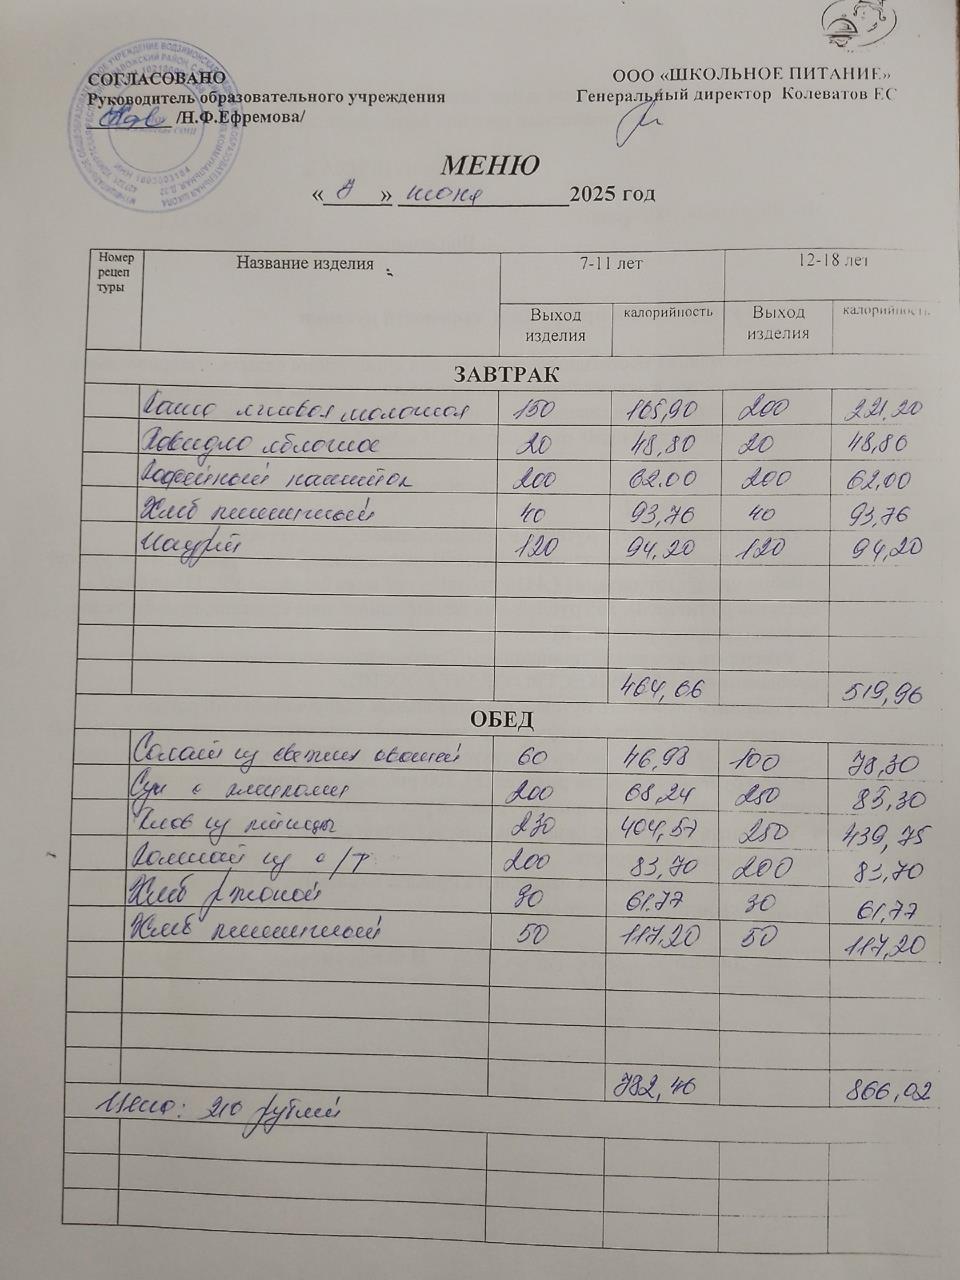 СОГЛАСОВАНО
Руководитель образовательного учреждения
/Н.Ф.Ефремова/
ООО «ШКОЛЬНОЕ ПИТАНИЕ»
Генеральный директор Колеватов ЕС
МЕНЮ
« 9 » июня 2025 год
Номер рецеп туры Название изделия 7-11 лет 12-18 лет
Выход изделия калорийность Выход изделия калорийность
ЗАВТРАК
Каша молочная 150 165,90 200 221,20
Повидло яблочное 20 48,80 20 48,80
Кофейный напиток 200 62.00 200 62,00
Хлеб пшеничный 40 93,76 40 93,76
120 94,20 120 94,20
464,66 519,96
ОБЕД
Салат из свежих овощей 60 46,98 100 78,30
Суп с 200 68,24 250 85,30
Плов из птицы 230 404,57 250 439,75
Компот из с/ф 200 83,70 200 83,70
Хлеб ржаной 30 61.77 30 61,77
Хлеб пшеничный 50 117,20 50 117,20
782,46 866,02
Цена: 210 рублей